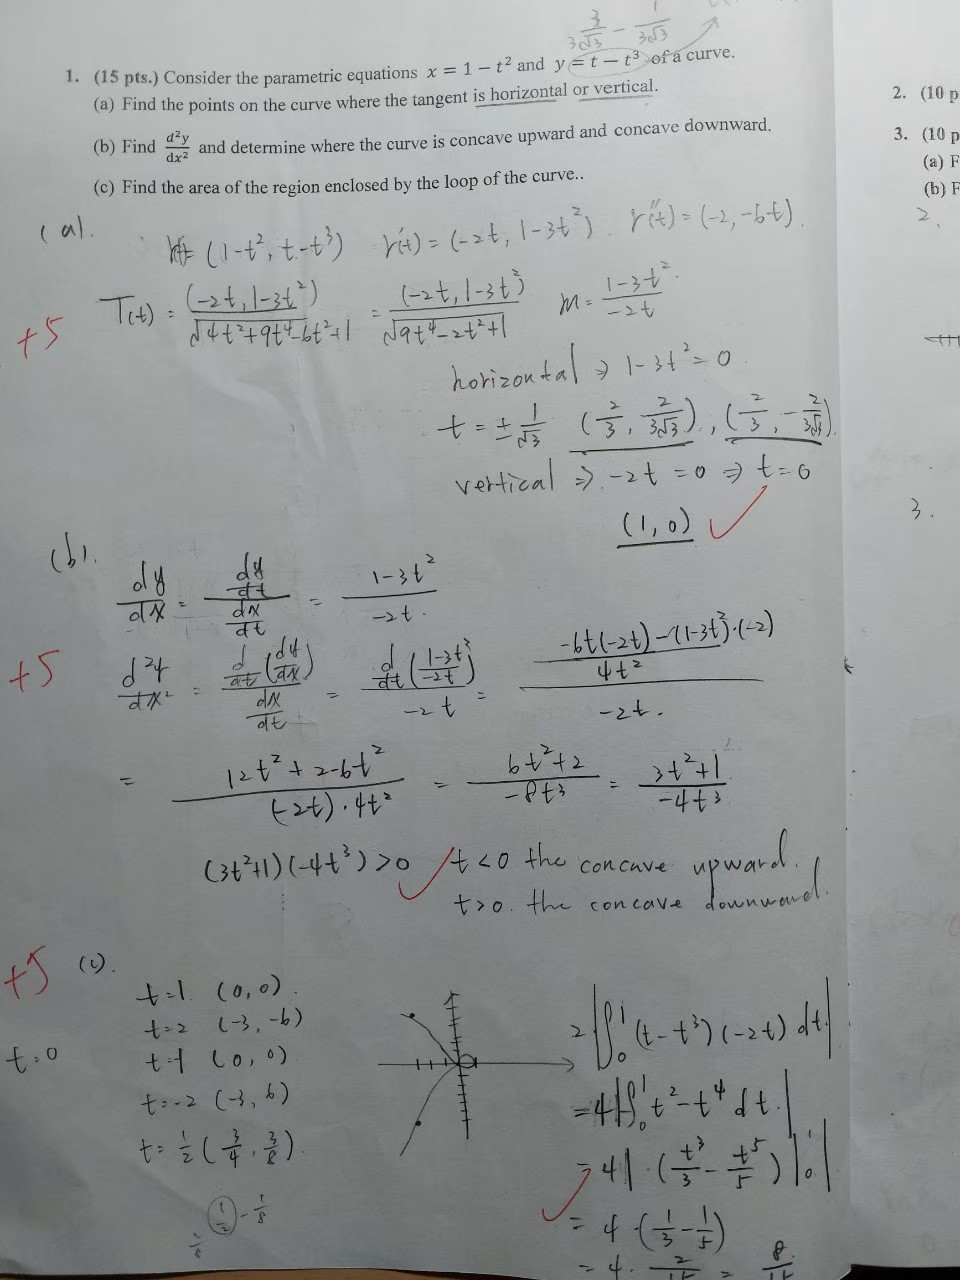 3/(3√3) - 1/(3√3)
1. (15 pts.) Consider the parametric equations x = 1 − t² and y = t − t³ of a curve.
(a) Find the points on the curve where the tangent is horizontal or vertical.
(b) Find d²y/dx² and determine where the curve is concave upward and concave downward.
(c) Find the area of the region enclosed by the loop of the curve..
2. (10 p
3. (10 p
(a) F
(b) F
2.
3.
(a).
(1-t², t-t³) r'(t) = (-2t, 1-3t²). r''(t) = (-2, -6t).
+5
T(t) = (-2t, 1-3t²)/√(4t²+9t⁴-6t²+1) = (-2t, 1-3t²)/√(9t⁴-2t²+1) m = (1-3t²)/(-2t)
horizontal ⇒ 1-3t² = 0
t = ± 1/√3 (2/3, 2/(3√3)), (2/3, -2/(3√3)).
vertical ⇒ -2t = 0 ⇒ t = 0
(1, 0)
(b).
dy/dx = (dy/dt)/(dx/dt) = (1-3t²)/(-2t).
+5
d²y/dx² = (d/dt (dy/dx))/(dx/dt) = (d/dt ((1-3t²)/(-2t)))/(-2t) = ((-6t(-2t) - (1-3t²)·(-2))/(4t²))/(-2t).
= (12t² + 2-6t²)/((-2t)·4t²) = (6t²+2)/(-8t³) = (3t²+1)/(-4t³)
(3t²+1)(-4t³) > 0 t < 0 the concave upward.
t > 0. the concave downward.
+5
(c).
t=1 (0, 0).
t=2 (-3, -6)
t=-1 (0, 0)
t=-2 (-3, 6)
t= 1/2 (3/4, 3/8)
t=0
1/2 - 1/8
2|∫₀¹ (t-t³)(-2t) dt|
= 4|∫₀¹ t²-t⁴ dt|
= 4|·(t³/3 - t⁵/5)|₀¹|
= 4·(1/3 - 1/5)
= 4· 2/15 = 8/15